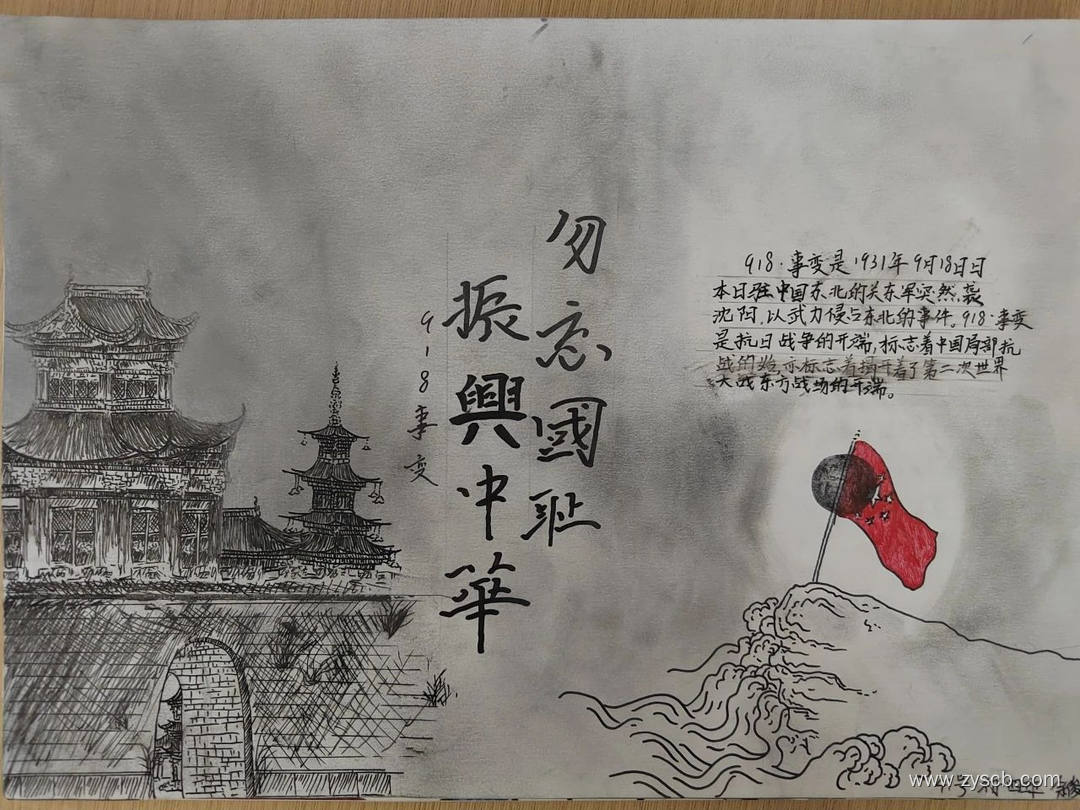 勿忘國耻
振興中華
9-18事变
918·事变是1931年9月18日日
本日驻中国东北的关东军突然袭
沈阳,以武力侵占东北的事件。918·事变
是抗日战争的开端,标志着中国局部抗
战的始,亦标志着揭开着了第二次世界
大战东方战场的开端。
www.zyscb.com